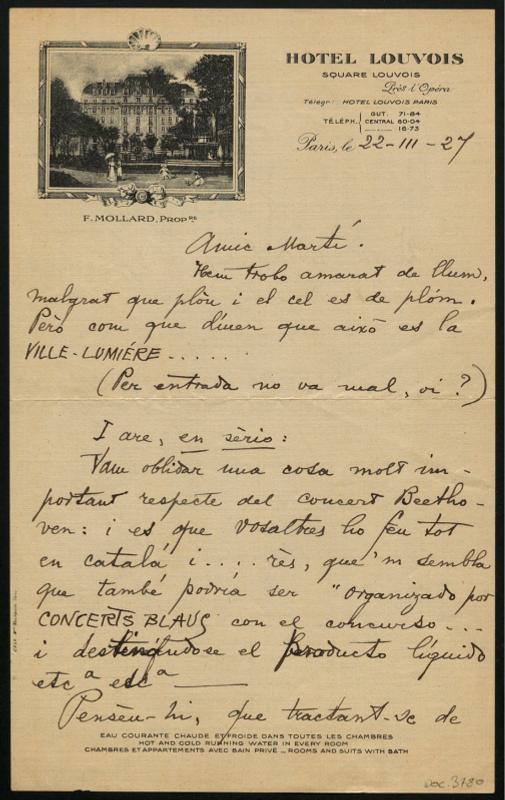 HOTEL LOUVOIS
SQUARE LOUVOIS
Près l'Opéra
Télégr: HOTEL LOUVOIS PARIS
TÉLÉPH. GUT. 71-84
CENTRAL 60-04
16-73
Paris, le 22-III-27
F. MOLLARD, PROPRE
Amic Martí.
Hem trobo amarat de llum,
malgrat que plòu i el cel es de plóm.
Però com que díuen que aixó es la
VILLE-LUMIÉRE......
(Per entrada no va mal, oi?)
I are, en sèrio:
Vam oblidar una cosa molt im-
portant respecte del concert Beetho-
ven: i es que vosaltres ho feu tot
en catalá i.... rès, que'm sembla
que també podria ser "organizado por
CONCERTS BLAUS con el concurso...
i destinándose el producto líquido
etcª etcª —
Penséu-hi, que tractant-se de
EAU COURANTE CHAUDE ET FROIDE DANS TOUTES LES CHAMBRES
HOT AND COLD RUNNING WATER IN EVERY ROOM
CHAMBRES ET APPARTEMENTS AVEC BAIN PRIVÉ — ROOMS AND SUITS WITH BATH
DOC. 3780